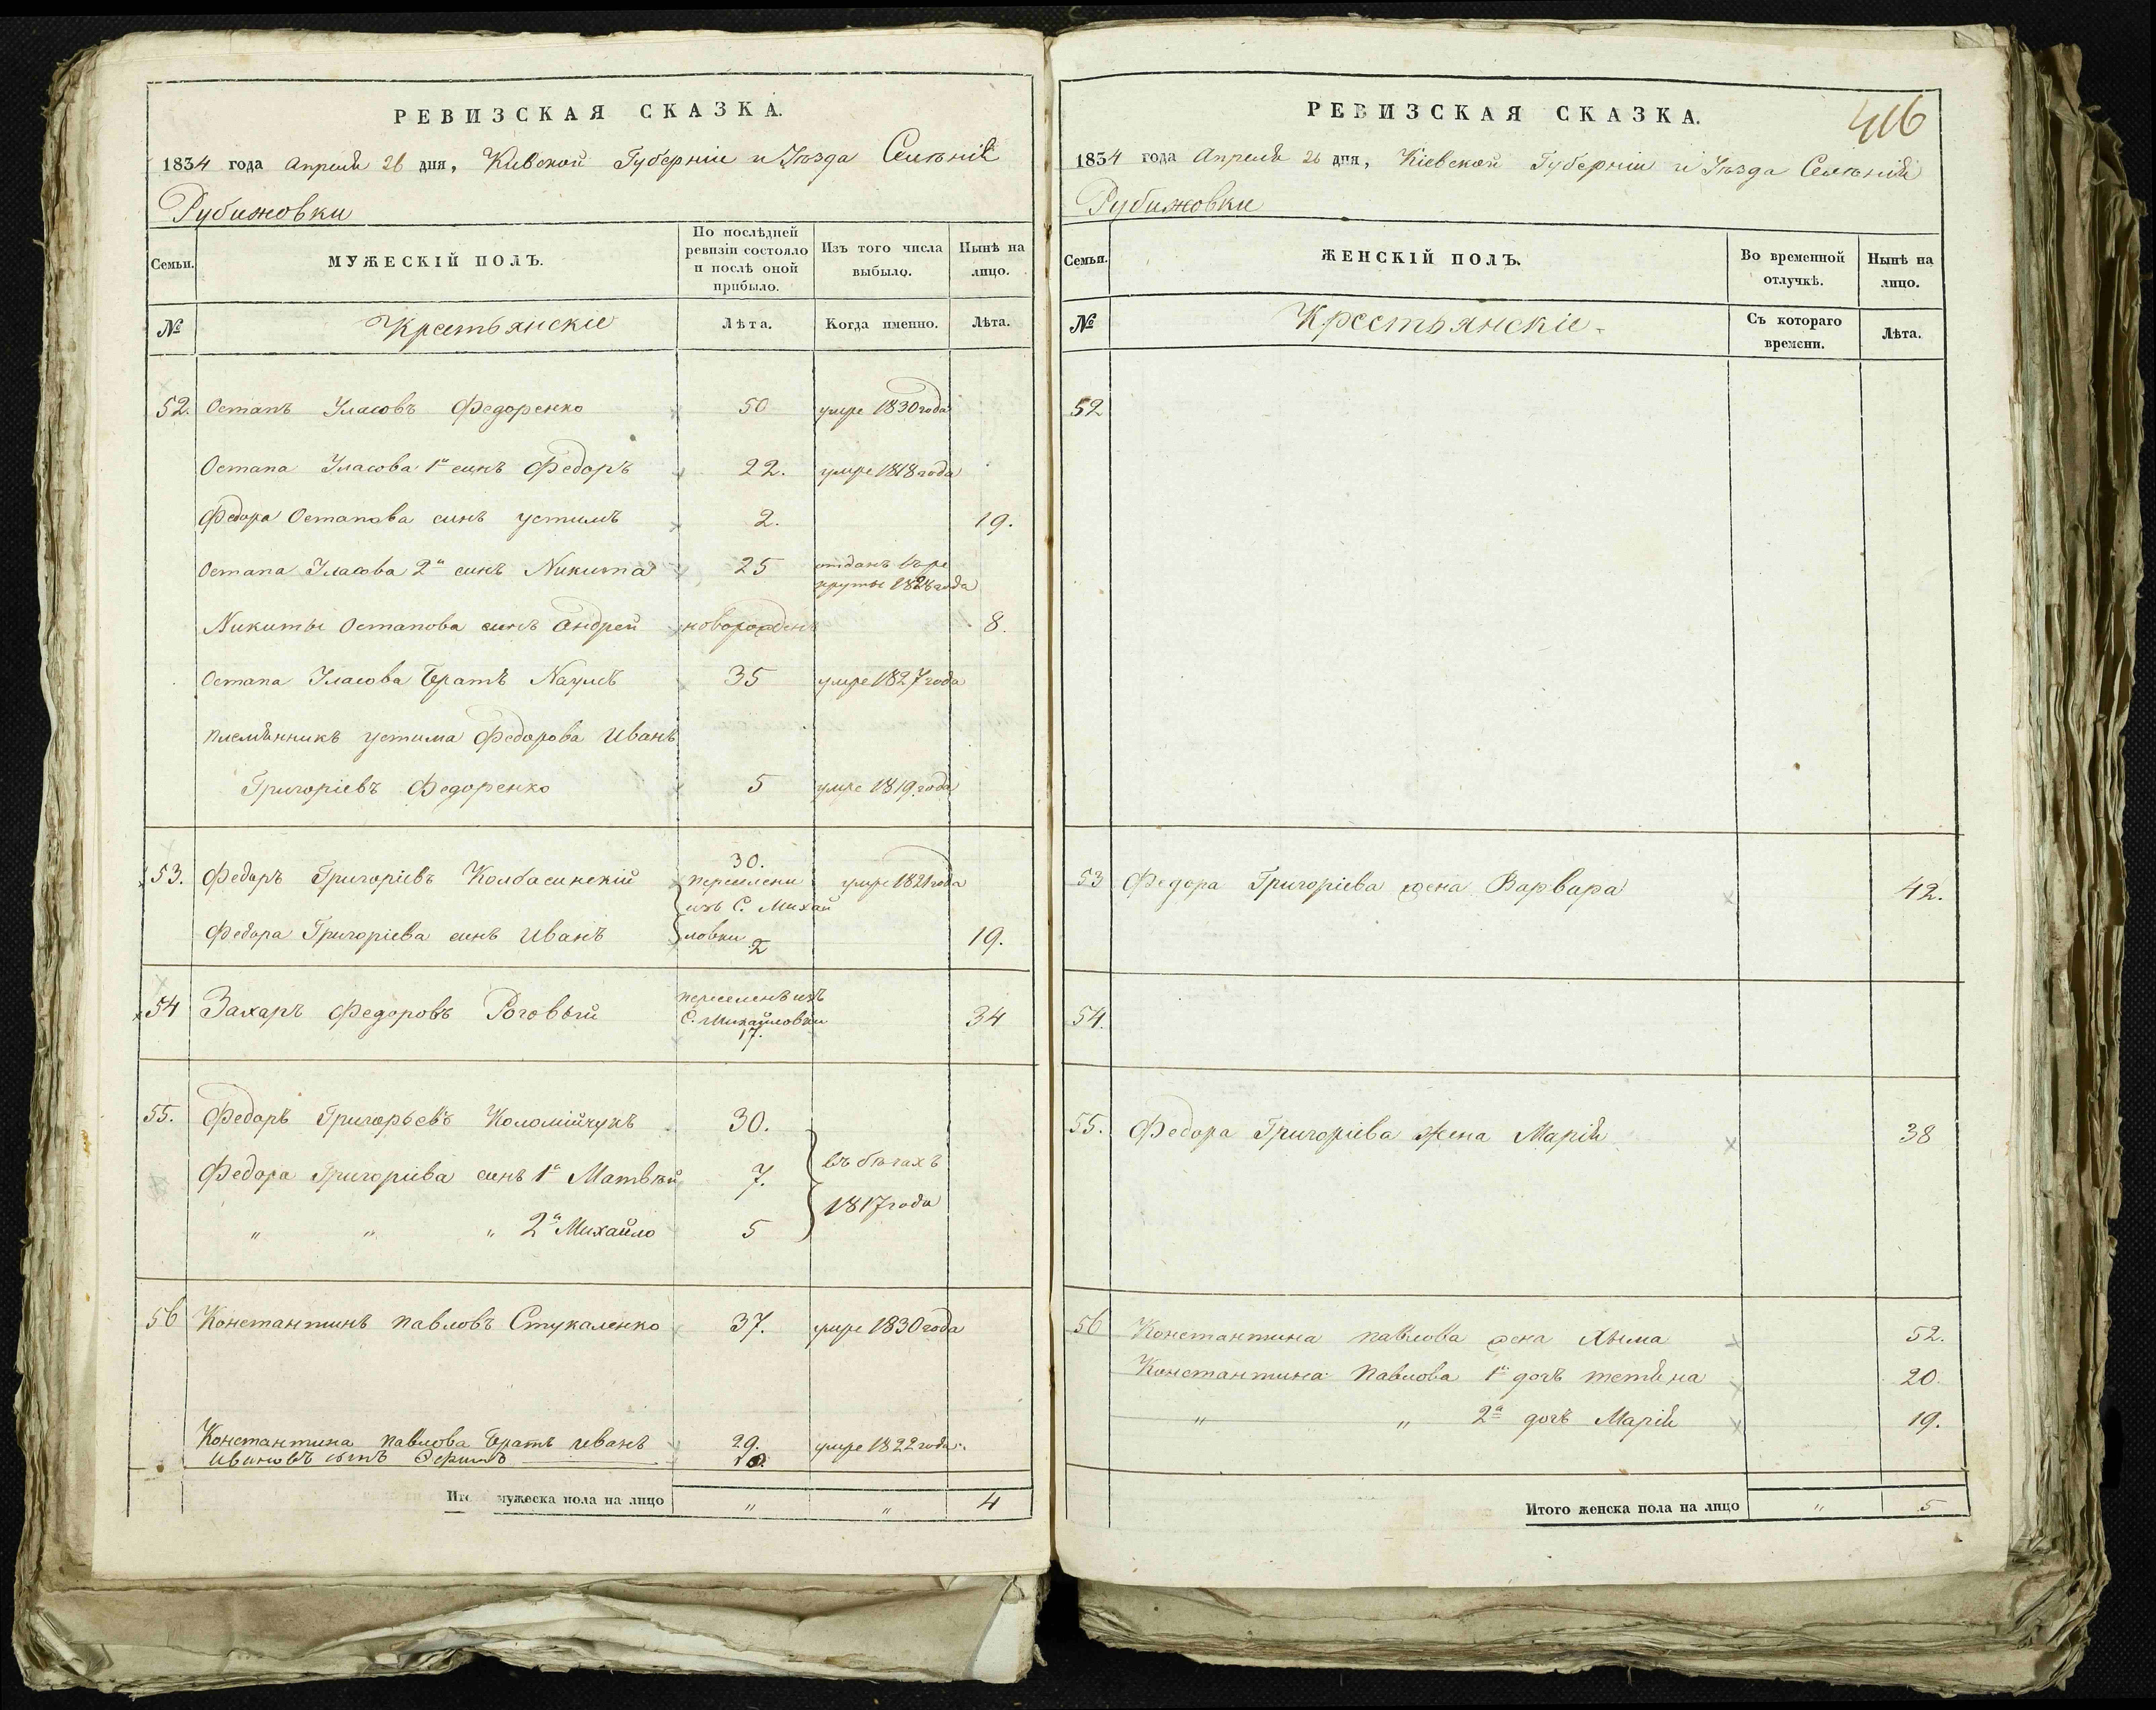 РЕВИЗСКАЯ СКАЗКА.
1834 года Апреля 26 дня, Киевской Губерніи и Уѣзда Селенія
Рубижовки
Семьи.
МУЖЕСКІЙ ПОЛЪ.
По послѣдней ревизіи состояло и послѣ оной прибыло.
Изъ того числа выбыло.
Нынѣ на лицо.
№
Крестьянскіе
Лѣта.
Когда именно.
Лѣта.
52. Остапъ Уласовъ Федоренко 50 умре 1830 года
Остапа Уласова 1й синъ Федоръ 22. умре 1818 года
Федора Остапова синъ Устимъ 2. 19.
Остапа Уласова 2й синъ Никита 25 отданъ въ ре
круты 1828 года
Никиты Остапова синъ Андрей новорожденъ 8.
Остапа Уласова братъ Наумъ 35 умре 1827 года
племянникъ Устима Федорова Иванъ
Григоріевъ Федоренко 5 умре 1819 года
30.
53. Федоръ Григоріевъ Колбасинскій переселени умре 1821 года
изъ С. Михай
Федора Григоріева синъ Иванъ ловки 2 19.
переселенъ изъ
54 Захаръ Федоровъ Роговый С. Михайловки 34
17.
55. Федоръ Григорьевъ Коломійчукъ 30.
Федора Григоріева синъ 1й Матвѣй 7. въ бѣгахъ
1817 года
" " " 2й Михайло 5
56 Константинъ Павловъ Стукаленко 37. умре 1830 года
Константина Павлова братъ Иванъ 29. умре 1822 года.
Ивановъ сынъ
Итого мужеска пола на лицо " " 4
РЕВИЗСКАЯ СКАЗКА.
416
1834 года Апреля 26 дня, Кіевской Губерніи и Уѣзда Селенія
Рубижовки
Семьи.
ЖЕНСКІЙ ПОЛЪ.
Во временной отлучкѣ.
Нынѣ на лицо.
№
Крестьянскіе
Съ котораго времени.
Лѣта.
52
53 Федора Григоріева жена Варвара 42.
54.
55. Федора Григоріева жена Марія 38
56 Константина Павлова жена Хыма 52.
Константина Павлова 1я дочь тетяна 20.
" " 2я дочь Марія 19.
Итого женска пола на лицо " 5